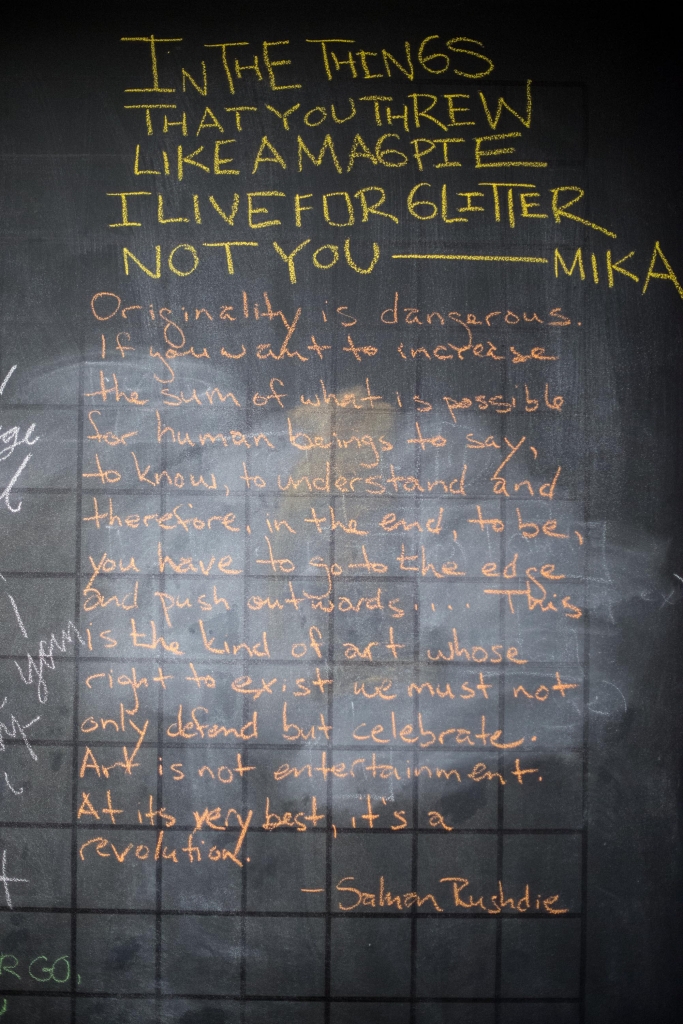 IN THE THINGS
THAT YOU THREW
LIKE A MAGPIE
I LIVE FOR GLITTER
NOT YOU — MIKA
Originality is dangerous.
If you want to increase
the sum of what is possible
for human beings to say,
to know, to understand and
therefore, in the end, to be,
you have to go to the edge
and push outwards.... This
is the kind of art whose
right to exist we must not
only defend but celebrate.
Art is not entertainment.
At its very best, it's a
revolution.
— Salman Rushdie
your
R GO,